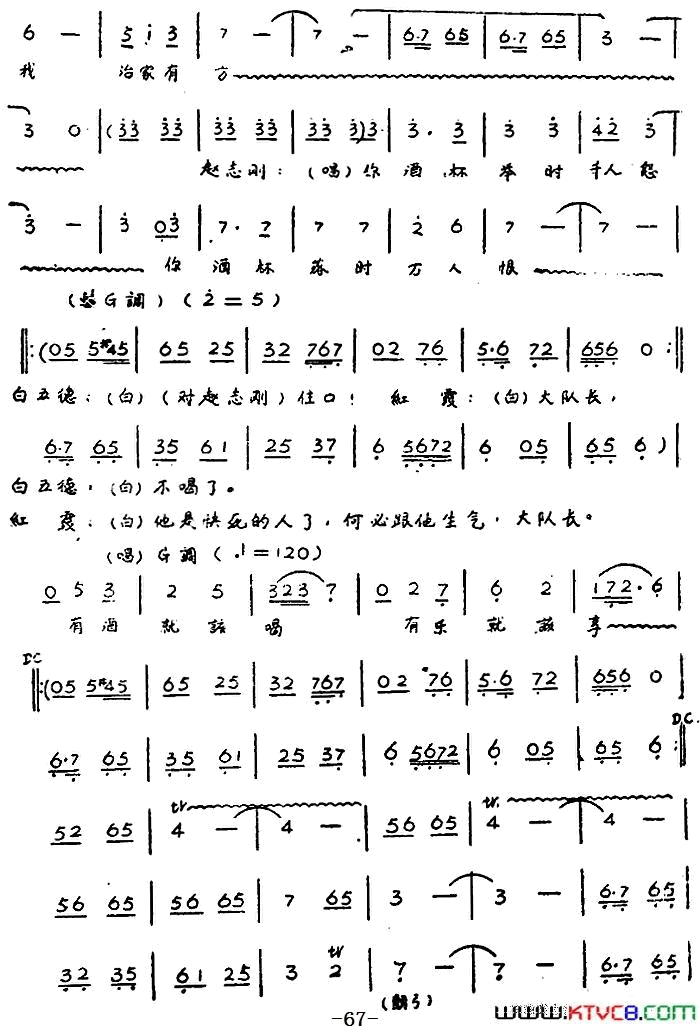 6 — | 5 i 3 | 7 — | 7 — | 6·7 65 | 6·7 65 | 3 — |
我 治家有 方
3 0 | (33 33 | 33 33 | 33 3)3 | 3· 3 | 3 3 | 42 3 |
赵志刚：(唱)你 酒 杯 举 时 千人怨
3 — | 3 03 | 7· 7 | 7 7 | 2 6 | 7 — | 7 — |
你 酒 杯 落 时 万 人 恨
G調) (2=5)
‖:(05 5#45 | 65 25 | 32 767 | 02 76 | 5·6 72 | 656 0 :‖
白五德：(白) (对赵志刚) 住口! 紅 霞：(白)大队长，
6·7 65 | 35 61 | 25 37 | 6 5672 | 6 05 | 65 6 )
白五德：(白)不喝了。
紅 霞：(白)他是快死的人了，何必跟他生气，大队长。
(唱) G調 (♩=120)
0 5 3 | 2 5 | 323 7 | 0 2 7 | 6 2 | 172·6 |
有酒 就 該 喝 有乐 就 該 享
D.C.
‖:(05 5#45 | 65 25 | 32 767 | 02 76 | 5·6 72 | 656 0 |
6·7 65 | 35 61 | 25 37 | 6 5672 | 6 05 | 65 6 :‖ D.C.
52 65 | tr 4 — | 4 — | 56 65 | tr 4 — | 4 — |
56 65 | 56 65 | 7 65 | 3 — | 3 — | 6·7 65 |
32 35 | 61 25 | 3 tr 2 | 7 — | 7 — | 6·7 65 |
-67-
www.KTVC8.com